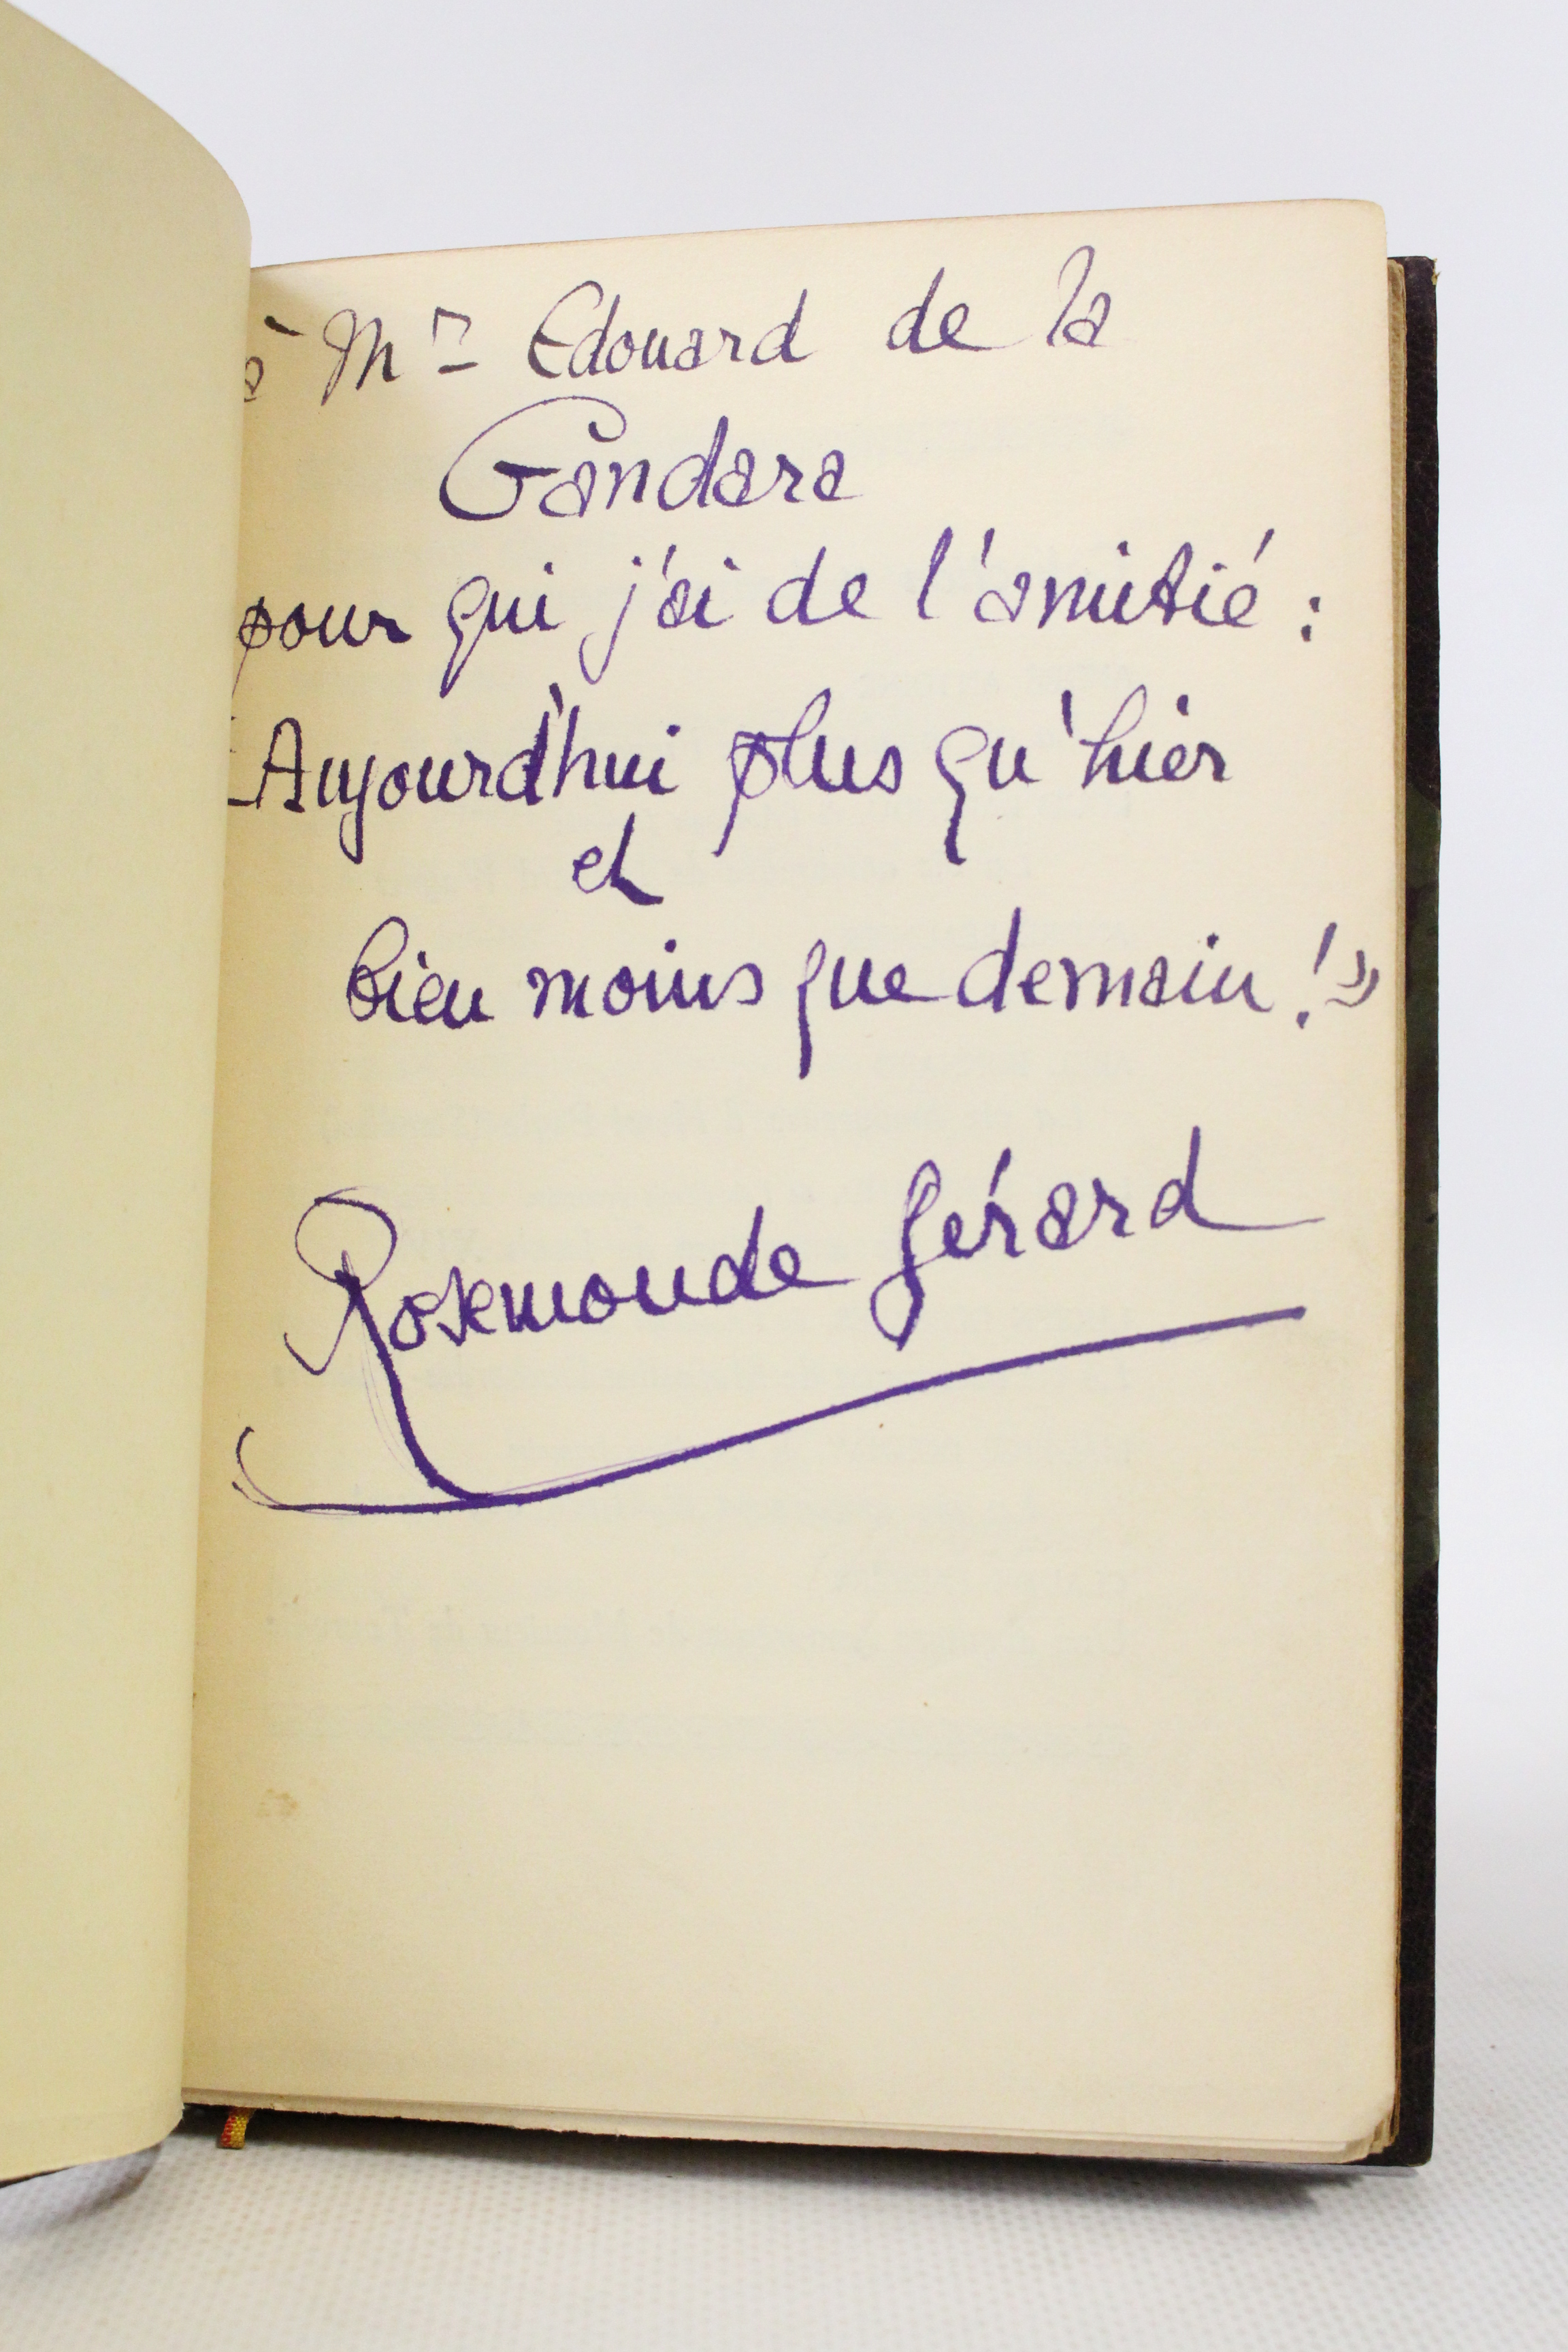 à Mr Edouard de la
Gandara
pour qui j'ai de l'amitié :
"Aujourd'hui plus qu'hier
et
bien moins que demain ! »
Rosemonde Gérard